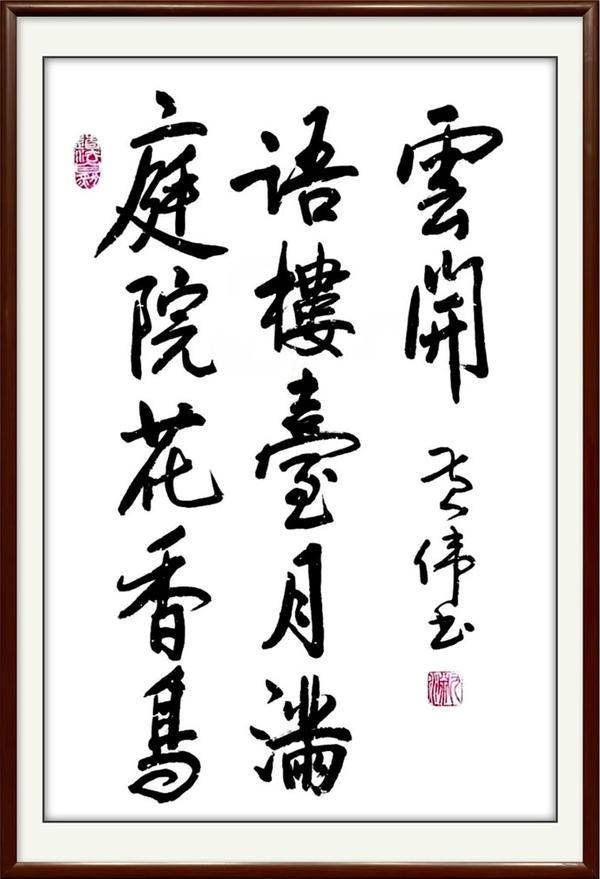 庭院花香鳥
語樓臺月滿
雲開
伟书